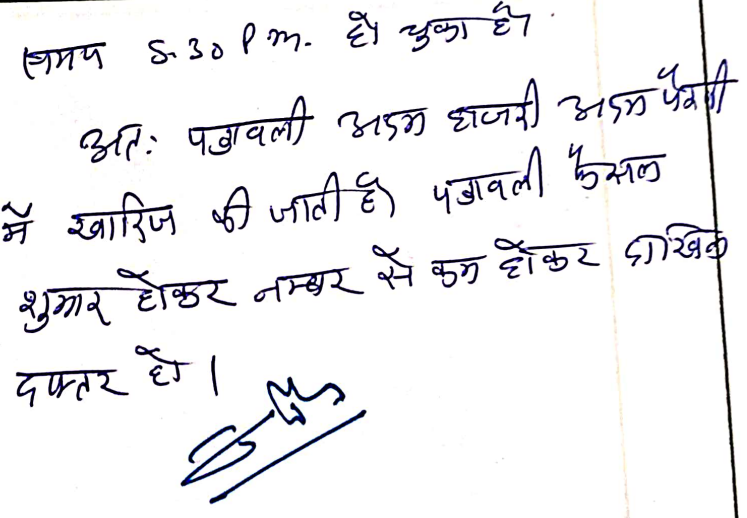 समय 5.30 P.m. हो चुका है।
अतः पत्रावली अदम हाजरी अदम पैरवी
में खारिज की जाती है। पत्रावली फैसल
शुमार होकर नम्बर से कम होकर दाखिल
दफ्तर हो।